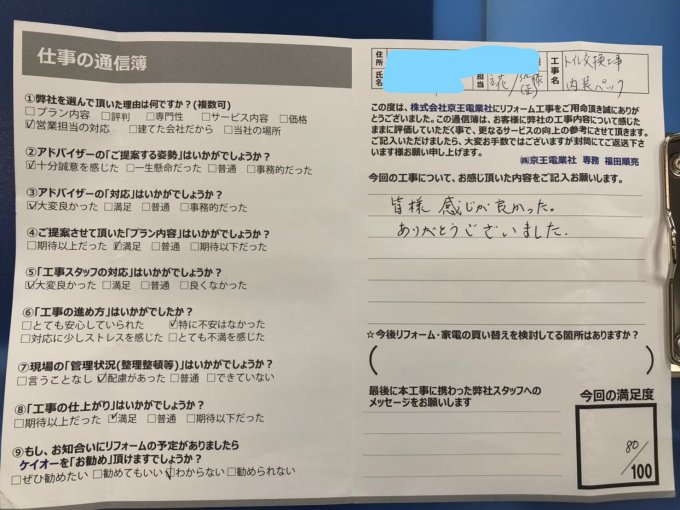 仕事の通信簿
①弊社を選んで頂いた理由は何ですか?(複数可)
□プラン内容 □評判 □専門性 □サービス内容 □価格
☑営業担当の対応 □建てた会社だから □当社の場所
②アドバイザーの「ご提案する姿勢」はいかがでしょうか?
☑十分誠意を感じた □一生懸命だった □普通 □事務的だった
③アドバイザーの「対応」はいかがでしょうか?
☑大変良かった □満足 □普通 □事務的だった
④ご提案させて頂いた「プラン内容」はいかがでしょうか?
□期待以上だった ☑満足 □普通 □期待以下だった
⑤「工事スタッフの対応」はいかがでしょうか?
☑大変良かった □満足 □普通 □良くなかった
⑥「工事の進め方」はいかがでしたか?
□とても安心していられた ☑特に不安はなかった
□対応に少しストレスを感じた □とても不満を感じた
⑦現場の「管理状況(整理整頓等)」はいかがでしょうか?
□言うことなし ☑配慮があった □普通 □できていない
⑧「工事の仕上がり」はいかがでしょうか?
□期待以上だった ☑満足 □普通 □期待以下だった
⑨もし、お知合いにリフォームの予定がありましたら
ケイオーを「お勧め」頂けますでしょうか?
□ぜひ勧めたい □勧めてもいい ☑わからない □勧められない
住所
氏名
担当
工事名
トイレ交換工事
内装パック
この度は、株式会社京王電業社にリフォーム工事をご用命頂き誠にありがと
うございました。この通信簿は、お客様に弊社の工事内容について感じた
ままに評価していただく事で、更なるサービスの向上の参考にさせて頂きます。
ご記入いただけましたら、大変お手数ではございますが封筒にてご返送下さ
います様お願い申し上げます。
㈱京王電業社 専務 福田順亮
今回の工事について、お感じ頂いた内容をご記入お願いします。
皆様 感じが良かった。
ありがとうございました.
☆今後リフォーム・家電の買い替えを検討してる箇所はありますか?
( )
最後に本工事に携わった弊社スタッフへの
メッセージをお願いします
今回の満足度
80
/100